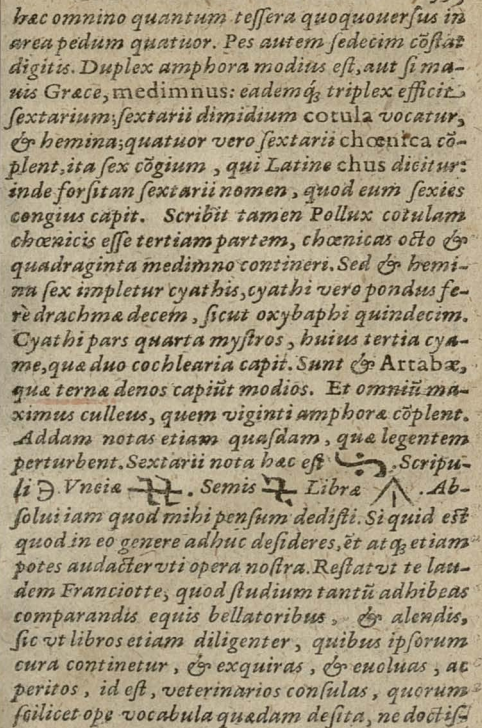 hæc omnino quantum teſſera quoquouerſus in
area pedum quatuor. Pes autem ſedecim cõſtat
digitis. Duplex amphora modius eſt, aut ſi ma-
uis Græce, medimnus: eademq́; triplex efficit
ſextarium; ſextarii dimidium cotula vocatur,
& hemina; quatuor vero ſextarii chœnica cõ-
plent, ita ſex cõgium, qui Latine chus dicitur:
inde forſitan ſextarii nomen, quod eum ſexies
congius capit. Scribit tamen Pollux cotulam
chœnicis eſſe tertiam partem, chœnicas octo &
quadraginta medimno contineri. Sed & hemi-
na ſex impletur cyathis, cyathi vero pondus fe-
re drachmæ decem, ſicut oxybaphi quindecim.
Cyathi pars quarta myſtros, huius tertia cya-
me, quæ duo cochlearia capit. Sunt & Artabæ,
quæ ternæ denos capiũt modios. Et omniũ ma-
ximus culleus, quem viginti amphoræ cõplent.
Addam notas etiam quaſdam, quæ legentem
perturbent. Sextarii nota hæc eſt . Scripu-
li . Vnciæ . Semis Libræ . Ab-
ſolui iam quod mihi penſum dediſti. Si quid eſt
quod in eo genere adhuc deſideres, ẽt atq; etiam
potes audacter vti opera noſtra. Reſtat vt te lau-
dem Franciotte, quod ſtudium tantũ adhibeas
comparandis equis bellatoribus, & alendis,
ſic vt libros etiam diligenter, quibus ipſorum
cura continetur, & exquiras, & euoluas, ac
peritos, id eſt, veterinarios conſulas, quorum
ſcilicet ope vocabula quædam deſita, ne doctiſ-